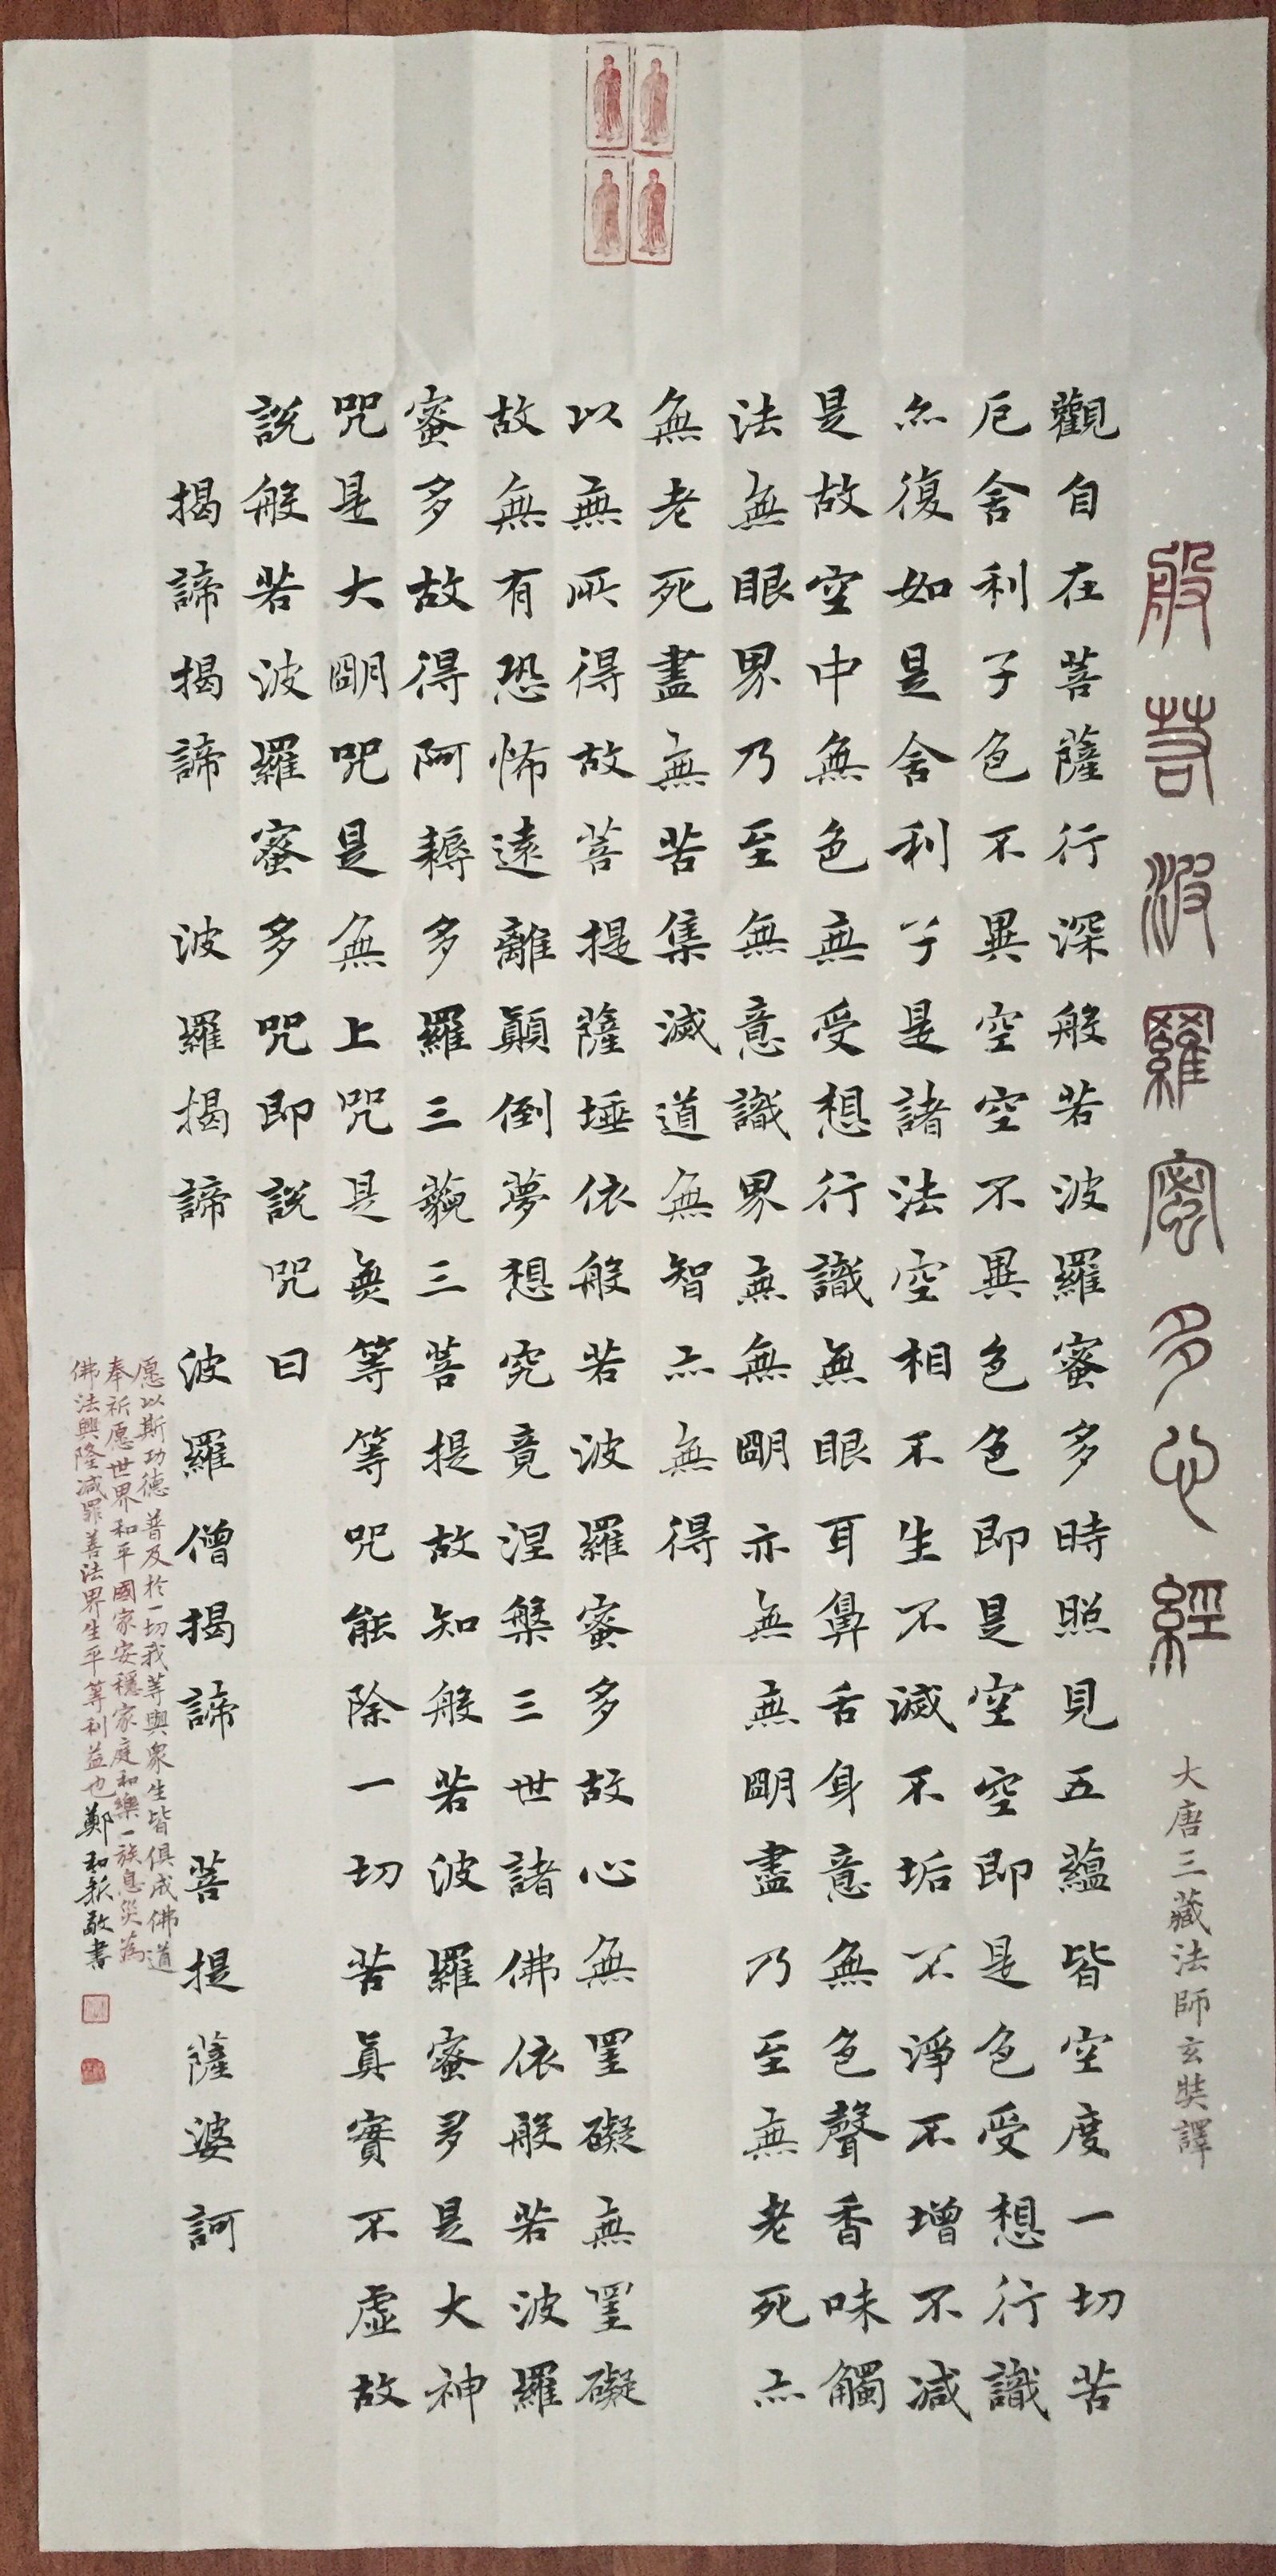 般若波羅蜜多心經
大唐三藏法師玄奘譯
觀自在菩薩行深般若波羅蜜多時照見五蘊皆空度一切苦
厄舍利子色不異空空不異色色即是空空即是色受想行識
亦復如是舍利子是諸法空相不生不滅不垢不淨不增不減
是故空中無色無受想行識無眼耳鼻舌身意無色聲香味觸
法無眼界乃至無意識界無無朙亦無無朙盡乃至無老死亦
無老死盡無苦集滅道無智亦無得
以無所得故菩提薩埵依般若波羅蜜多故心無罣礙無罣礙
故無有恐怖遠離顛倒夢想究竟涅槃三世諸佛依般若波羅
蜜多故得阿耨多羅三藐三菩提故知般若波羅蜜多是大神
咒是大朙咒是無上咒是無等等咒能除一切苦真實不虛故
說般若波羅蜜多咒即說咒曰
揭諦揭諦 波羅揭諦 波羅僧揭諦 菩提薩婆訶
愿以斯功德普及於一切我等與眾生皆俱成佛道
奉祈愿世界和平國家安穩家庭和樂一族息災為
佛法興隆減罪善法界生平等利益也 鄭和新敬書